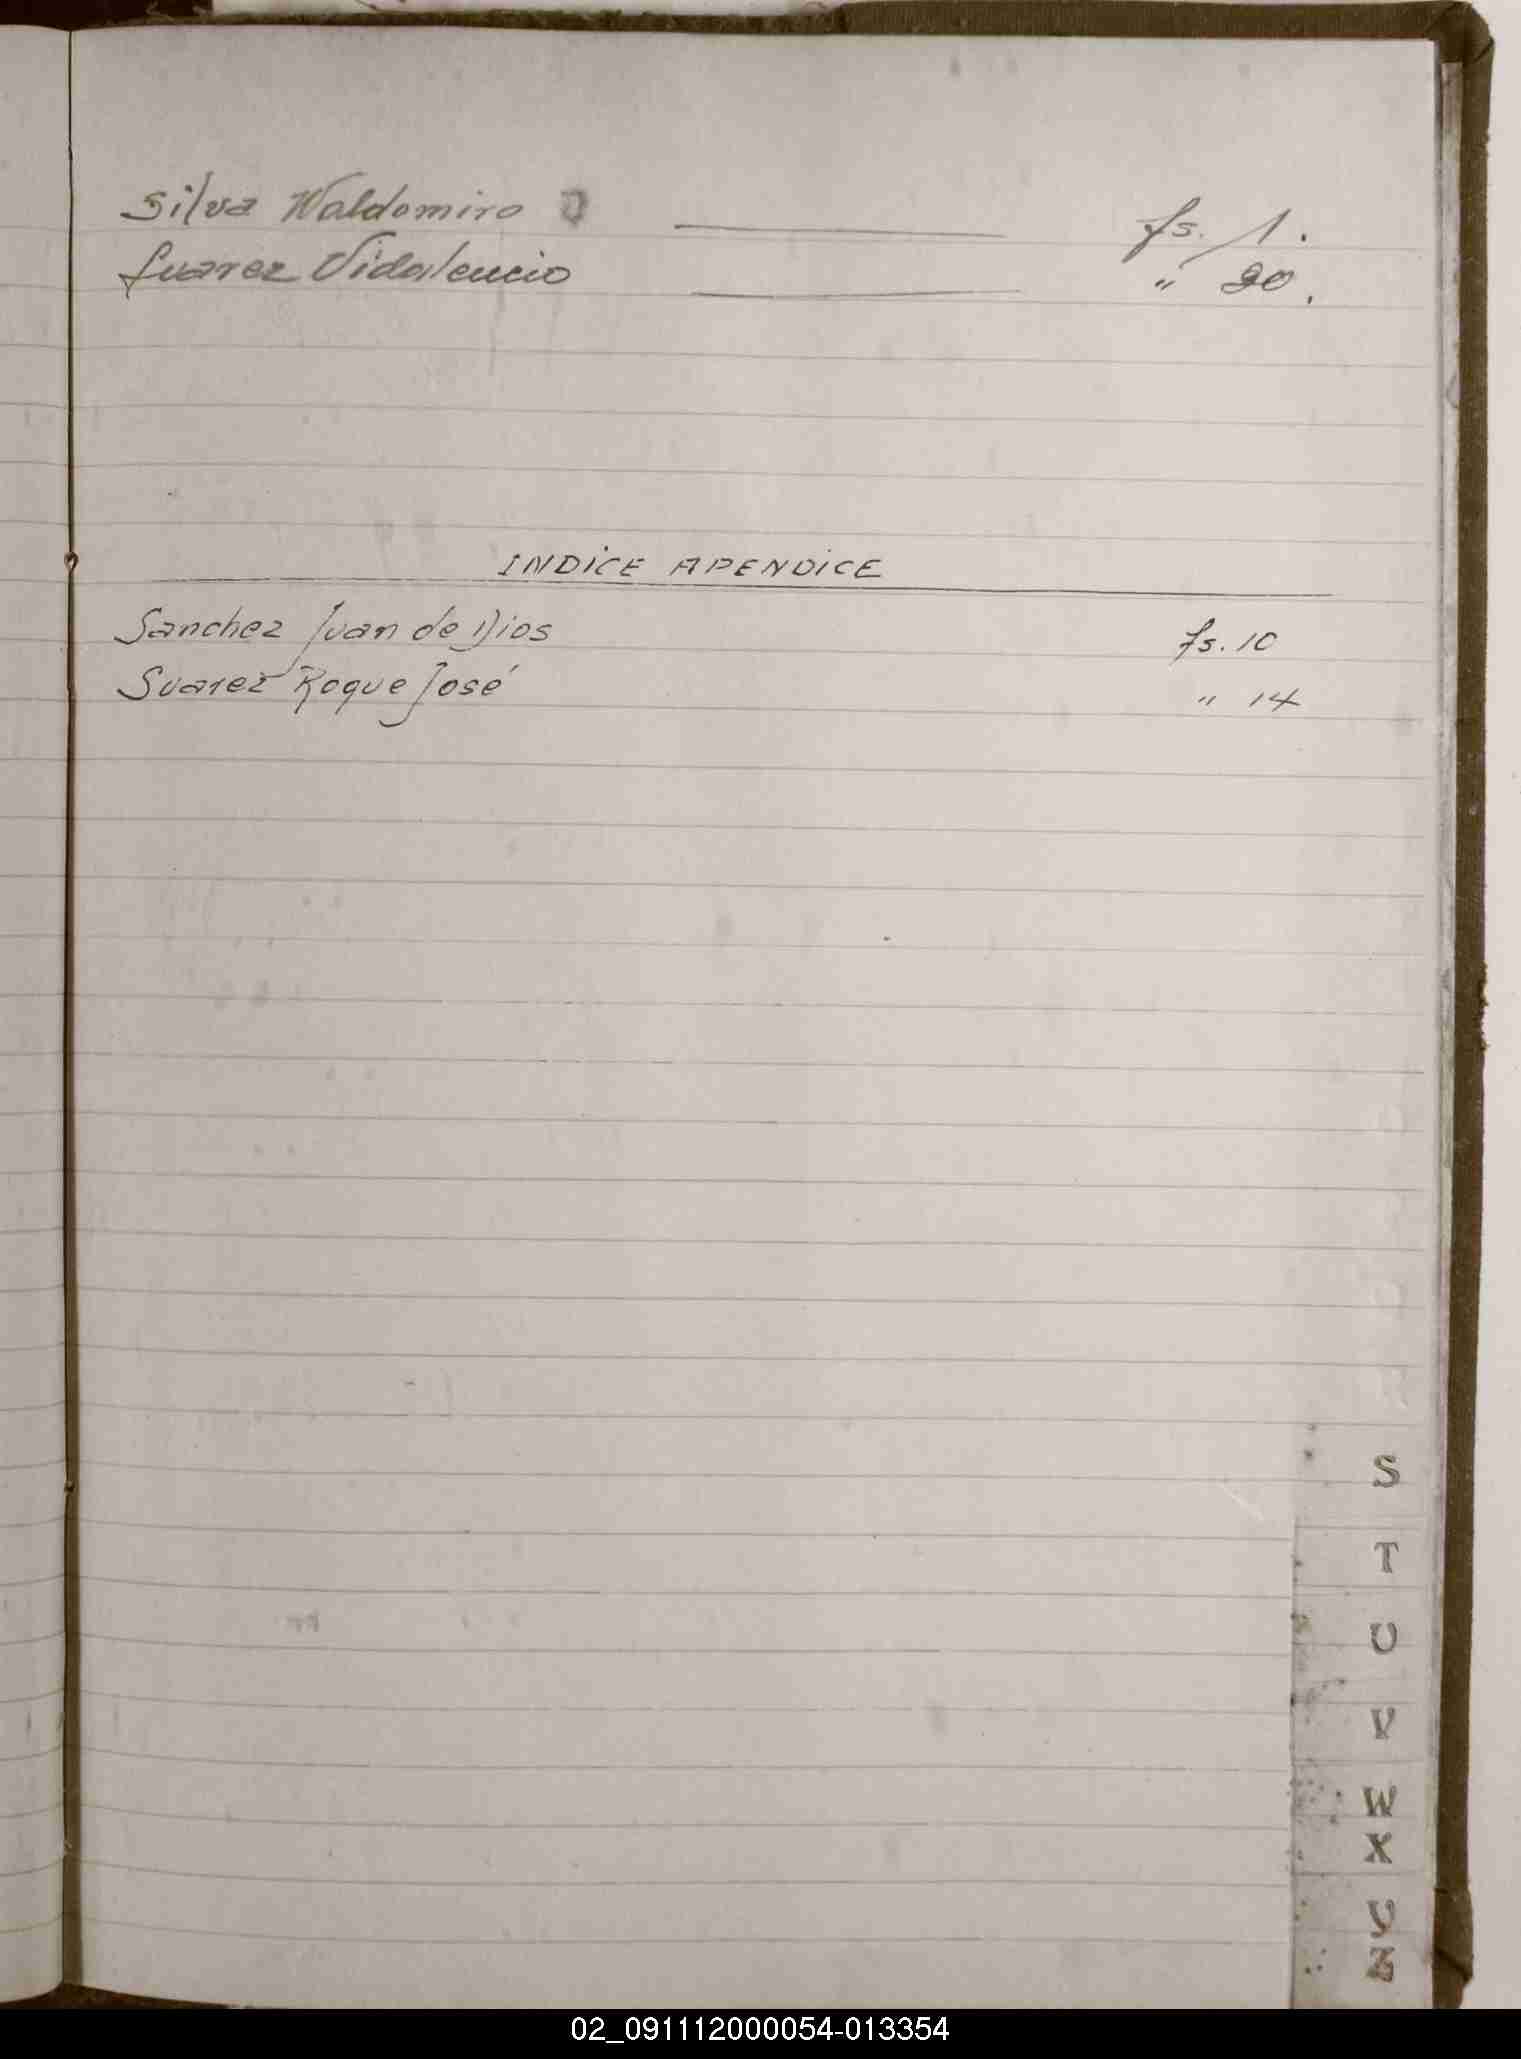 Silva Waldomiro ——— fs. 1.
Suarez Vidalencio ——— " 20.
INDICE APENDICE
Sanchez Juan de Dios fs. 10
Suarez Roque José " 14
S
T
U
V
W
X
Y
Z
02_091112000054-013354